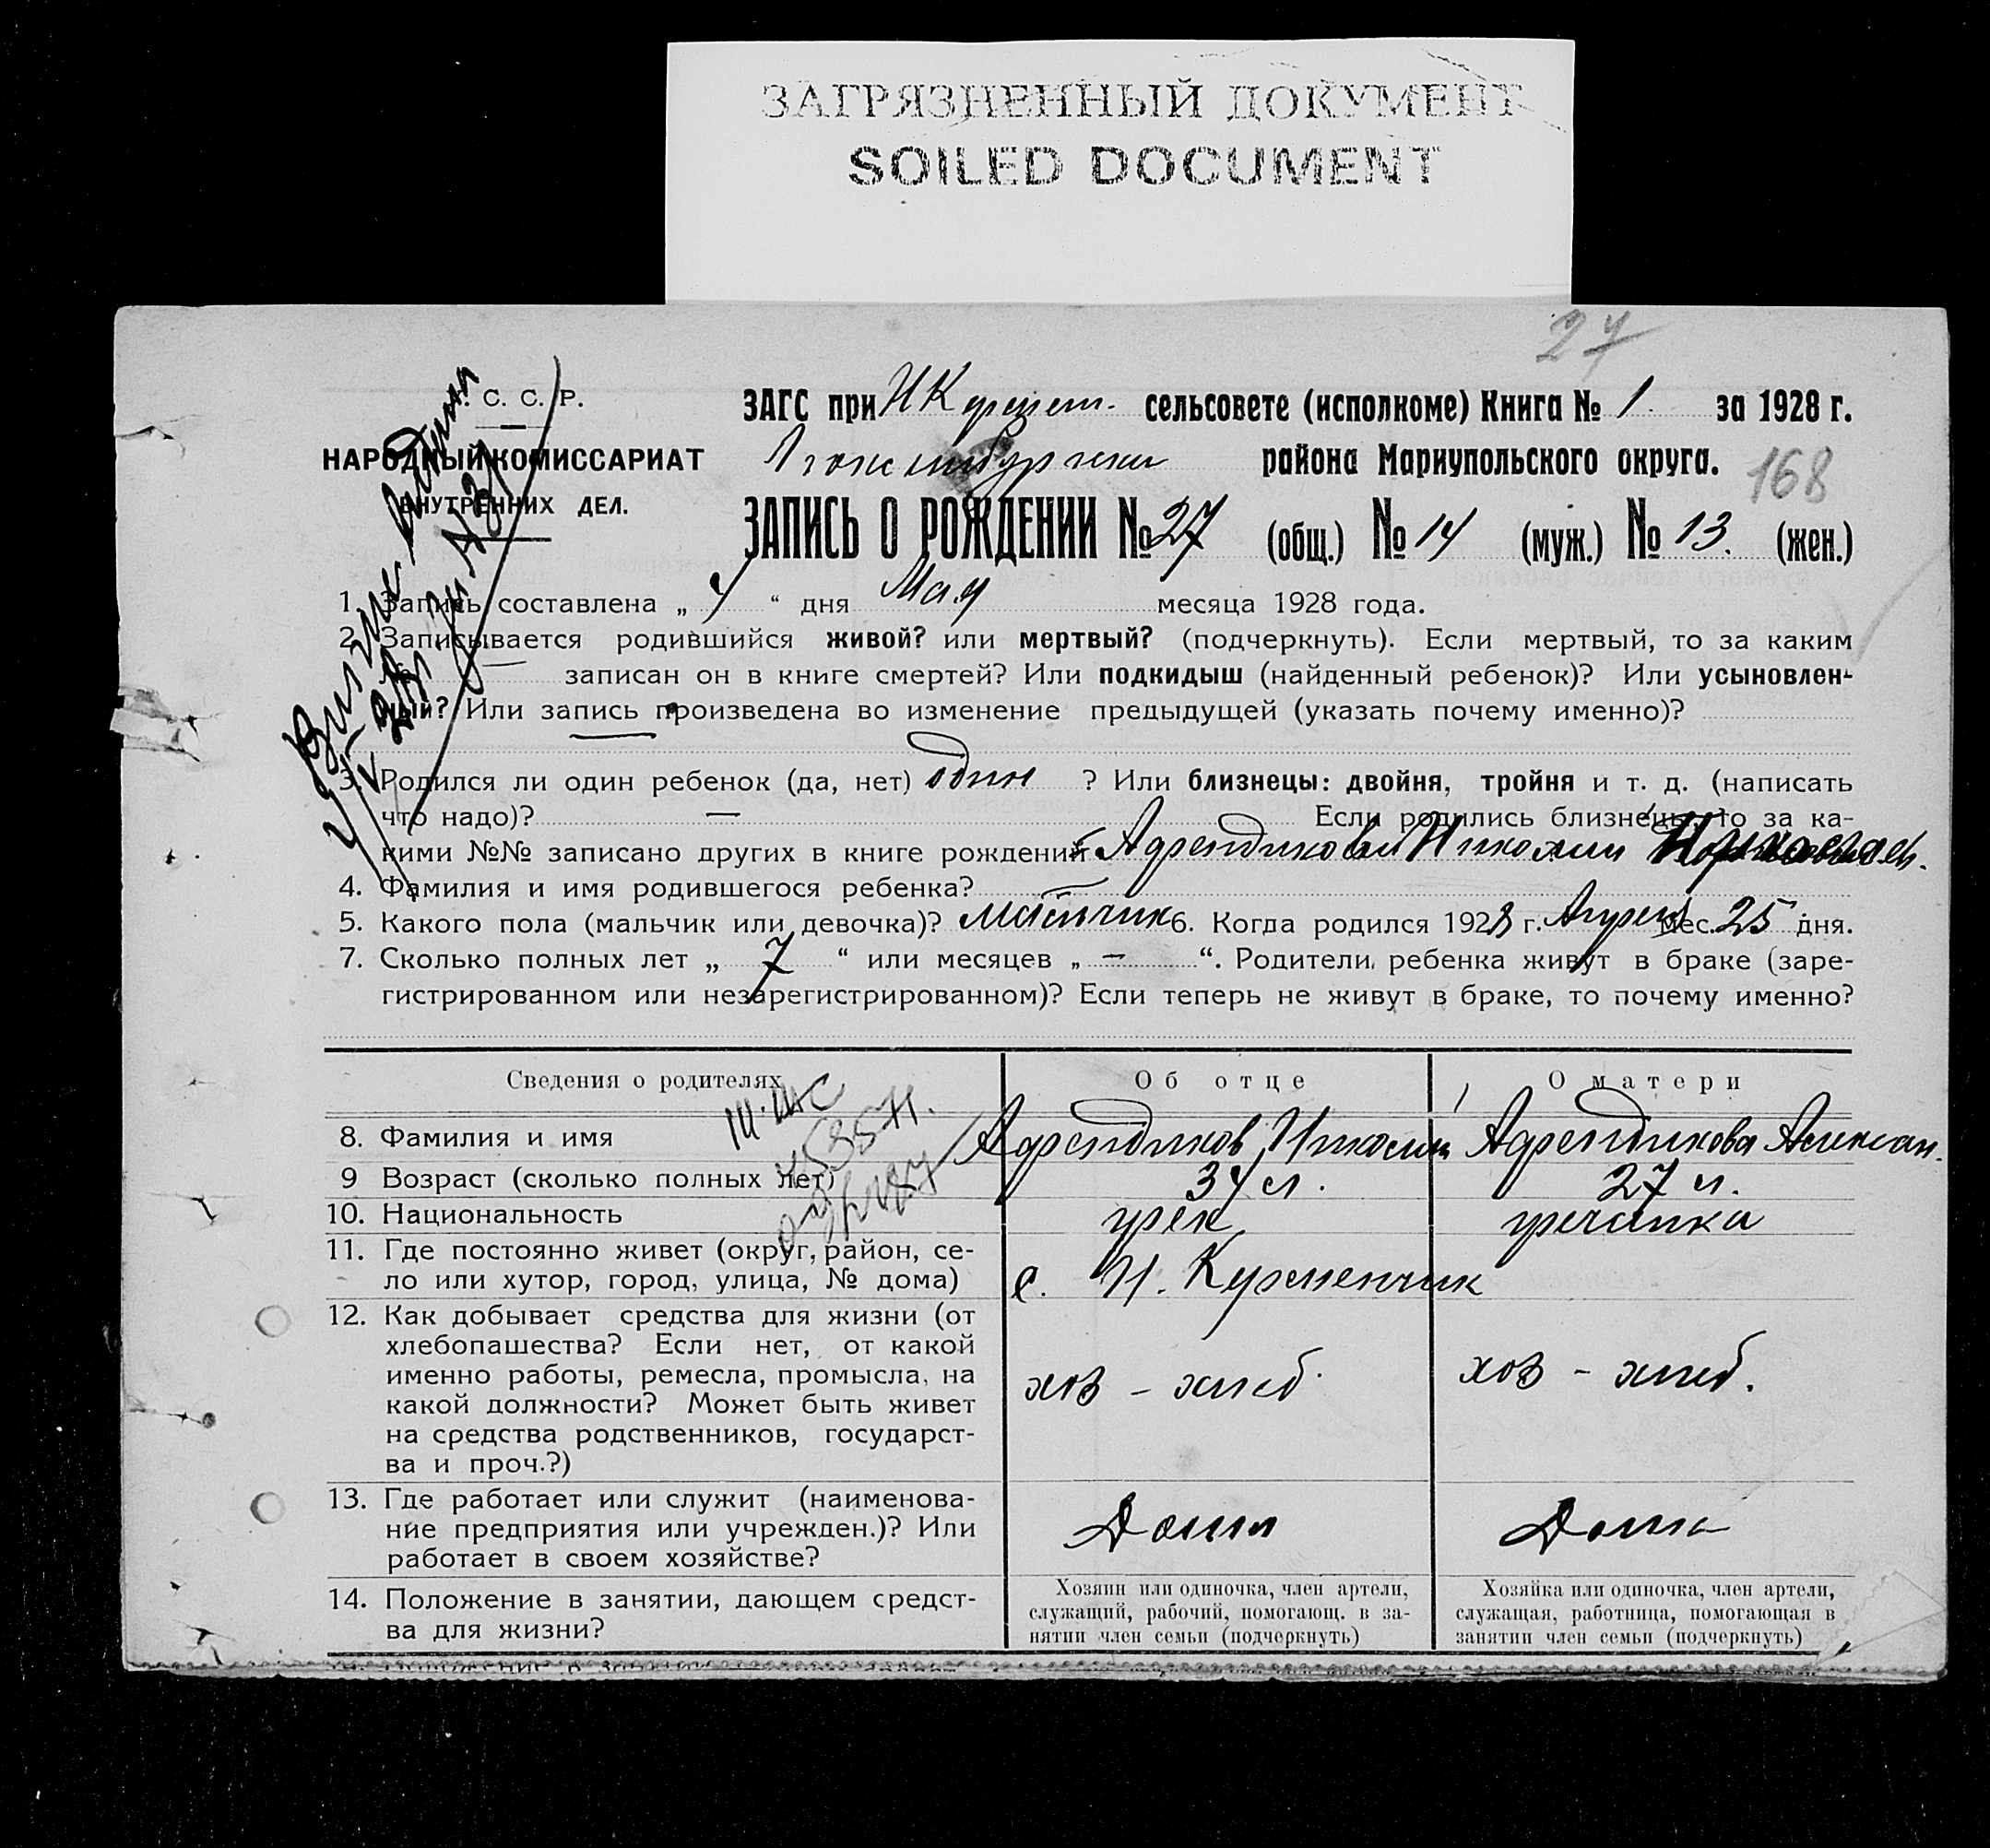 ЗАГРЯЗНЕННЫЙ ДОКУМЕНТ
SOILED DOCUMENT
27
С. С. Р.
НАРОДНЫЙ КОМИССАРИАТ
ВНУТРЕННИХ ДЕЛ.
ЗАГС при сельсовете (исполкоме) Книга № 1. за 1928 г.
района Мариупольского округа.
168
ЗАПИСЬ О РОЖДЕНИИ № 27 (общ.) № 14 (муж.) № 13. (жен.)
1. Запись составлена „ “ дня Мая месяца 1928 года.
2. Записывается родившийся живой? или мертвый? (подчеркнуть). Если мертвый, то за каким
№ — записан он в книге смертей? Или подкидыш (найденный ребенок)? Или усыновлен-
ный? Или запись произведена во изменение предыдущей (указать почему именно)?
3. Родился ли один ребенок (да, нет) один ? Или близнецы: двойня, тройня и т. д. (написать
что надо)? — Если родились близнецы, то за ка-
кими №№ записано других в книге рождений
4. Фамилия и имя родившегося ребенка?
5. Какого пола (мальчик или девочка)? мальчик 6. Когда родился 1928 г. Апрель мес. 25 дня.
7. Сколько полных лет „ 7 “ или месяцев „ — “. Родители ребенка живут в браке (заре-
гистрированном или незарегистрированном)? Если теперь не живут в браке, то почему именно?
Сведения о родителях Об отце О матери
8. Фамилия и имя Николай
9 Возраст (сколько полных лет) 34 л. 27 л.
10. Национальность грек гречанка
11. Где постоянно живет (округ, район, се-
ло или хутор, город, улица, № дома) с. Н. Керменчик
12. Как добывает средства для жизни (от
хлебопашества? Если нет, от какой
именно работы, ремесла, промысла, на
какой должности? Может быть живет
на средства родственников, государст-
ва и проч.?)
хоз - хлеб. хоз - хлеб.
13. Где работает или служит (наименова-
ние предприятия или учрежден.)? Или
работает в своем хозяйстве?
Дома Дома
14. Положение в занятии, дающем средст-
ва для жизни?
Хозяин или одиночка, член артели,
служащий, рабочий, помогающ. в за-
нятии член семьи (подчеркнуть)
Хозяйка или одиночка, член артели,
служащая, работница, помогающая в
занятии член семьи (подчеркнуть)